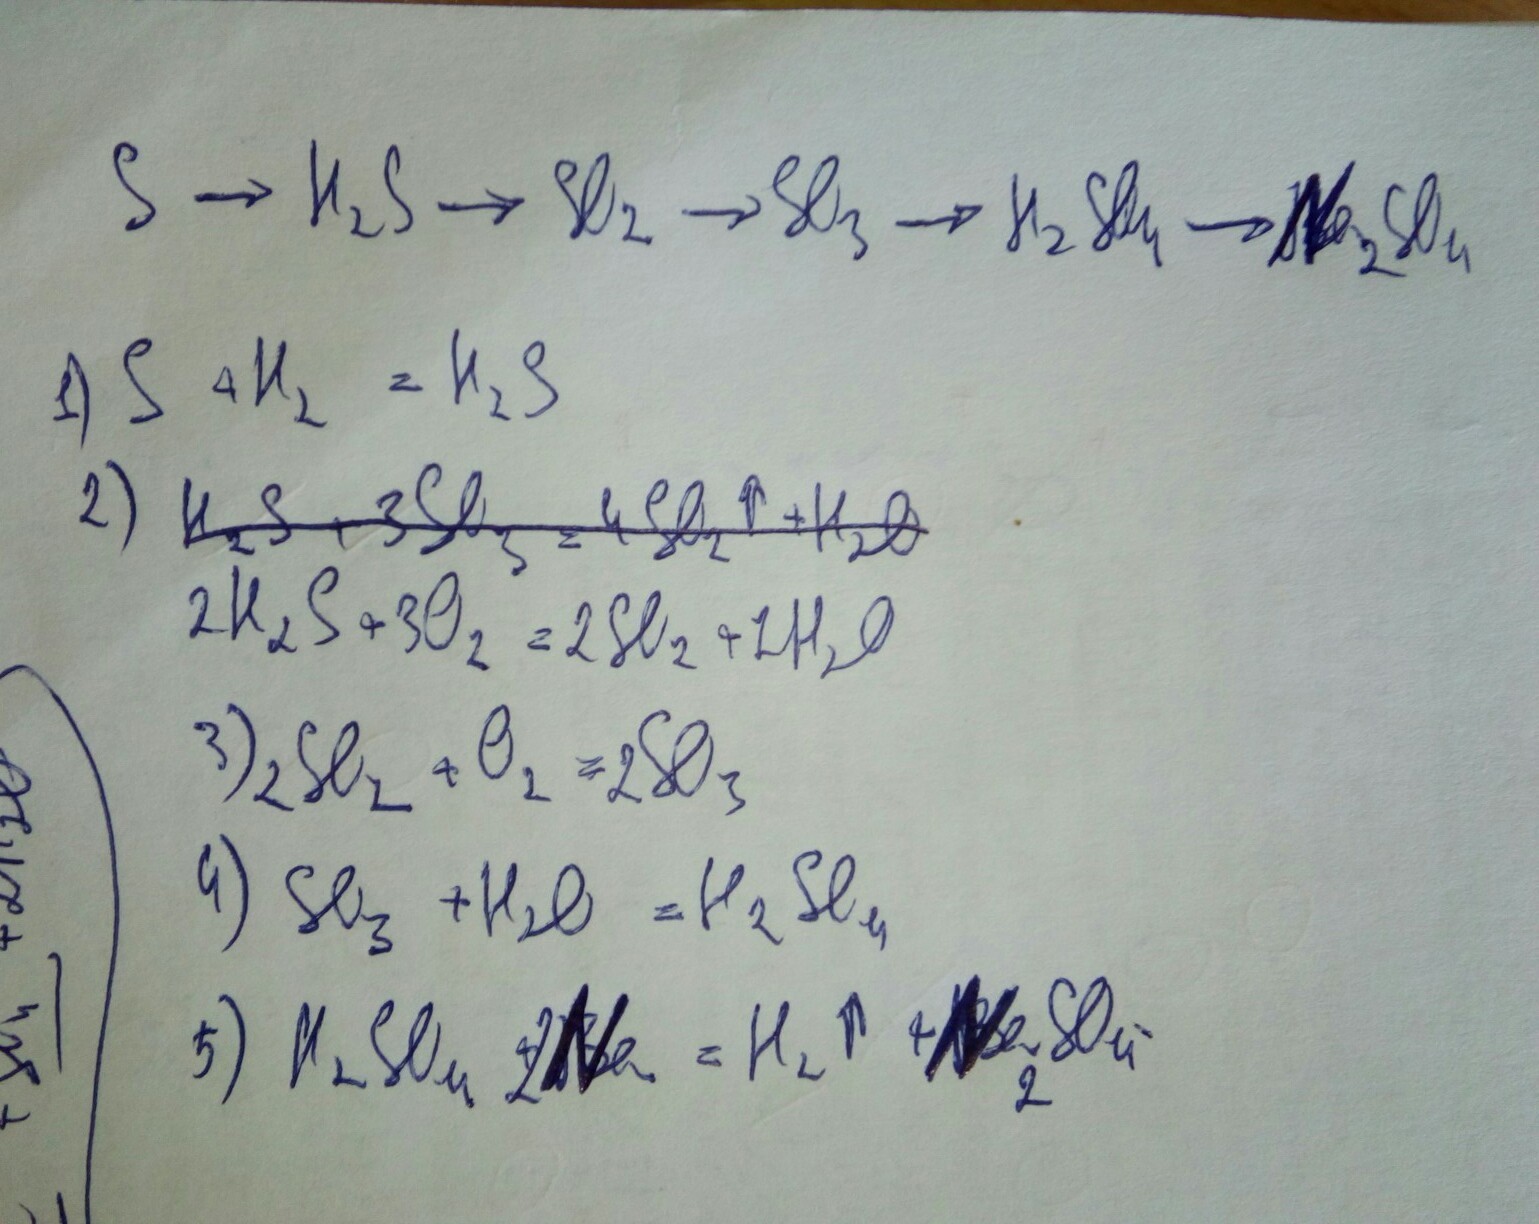 S → H₂S → SO₂ → SO₃ → H₂SO₄ → Na₂SO₄
1) S + H₂ = H₂S
2) H₂S + 3SO₃ = 4SO₂↑ + H₂O
2H₂S + 3O₂ = 2SO₂ + 2H₂O
3) 2SO₂ + O₂ = 2SO₃
4) SO₃ + H₂O = H₂SO₄
5) H₂SO₄ + 2Na = H₂↑ + Na₂SO₄
+ 2H₂O